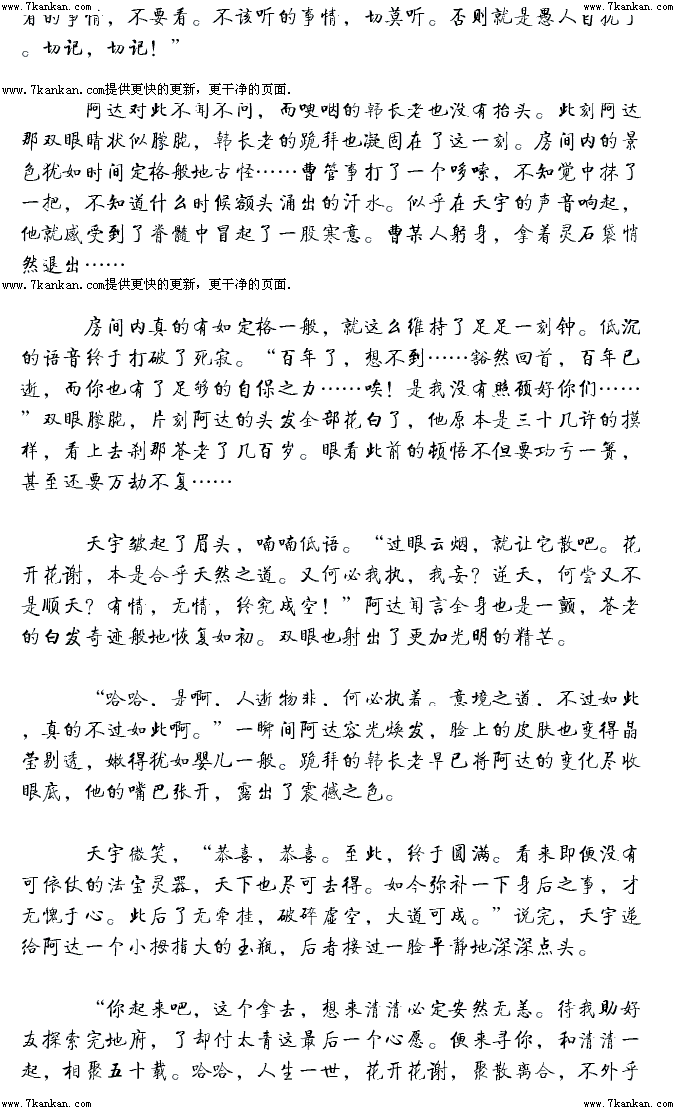 www.7kankan.com www.7kankan.com
看的事情，不要看。不该听的事情，切莫听。否则就是愚人自扰了
。切记，切记！”
www.7kankan.com提供更快的更新，更干净的页面.
阿达对此不闻不问，而哽咽的韩长老也没有抬头。此刻阿达
那双眼睛状似朦胧，韩长老的跪拜也凝固在了这一刻。房间内的景
色犹如时间定格般地古怪……曹管事打了一个哆嗦，不知觉中抹了
一把，不知道什么时候额头涌出的汗水。似乎在天宇的声音响起，
他就感受到了脊髓中冒起了一股寒意。曹某人躬身，拿着灵石袋悄
然退出……
www.7kankan.com提供更快的更新，更干净的页面.
房间内真的有如定格一般，就这么维持了足足一刻钟。低沉
的语音终于打破了死寂。“百年了，想不到……豁然回首，百年已
逝，而你也有了足够的自保之力……唉！是我没有照顾好你们……
”双眼朦胧，片刻阿达的头发全部花白了，他原本是三十几许的模
样，看上去刹那苍老了几百岁。眼看此前的顿悟不但要功亏一篑，
甚至还要万劫不复……
天宇皱起了眉头，喃喃低语。“过眼云烟，就让它散吧。花
开花谢，本是合乎天然之道。又何必我执，我妄？逆天，何尝又不
是顺天？有情，无情，终究成空！”阿达闻言全身也是一颤，苍老
的白发奇迹般地恢复如初。双眼也射出了更加光明的精芒。
“哈哈．是啊．人逝物非．何必执着。意境之道．不过如此
，真的不过如此啊。”一瞬间阿达容光焕发，脸上的皮肤也变得晶
莹剔透，嫩得犹如婴儿一般。跪拜的韩长老早已将阿达的变化尽收
眼底，他的嘴巴张开，露出了震撼之色。
天宇微笑，“恭喜，恭喜。至此，终于圆满。看来即便没有
可依仗的法宝灵器，天下也尽可去得。如今弥补一下身后之事，才
无愧于心。此后了无牵挂，破碎虚空，大道可成。”说完，天宇递
给阿达一个小拇指大的玉瓶，后者接过一脸平静地深深点头。
“你起来吧，这个拿去，想来清清必定安然无恙。待我助好
友探索完地府，了却付太青这最后一个心愿。便来寻你，和清清一
起，相聚五十载。哈哈，人生一世，花开花谢，聚散离合，不外乎
www.7kankan.com www.7kankan.com